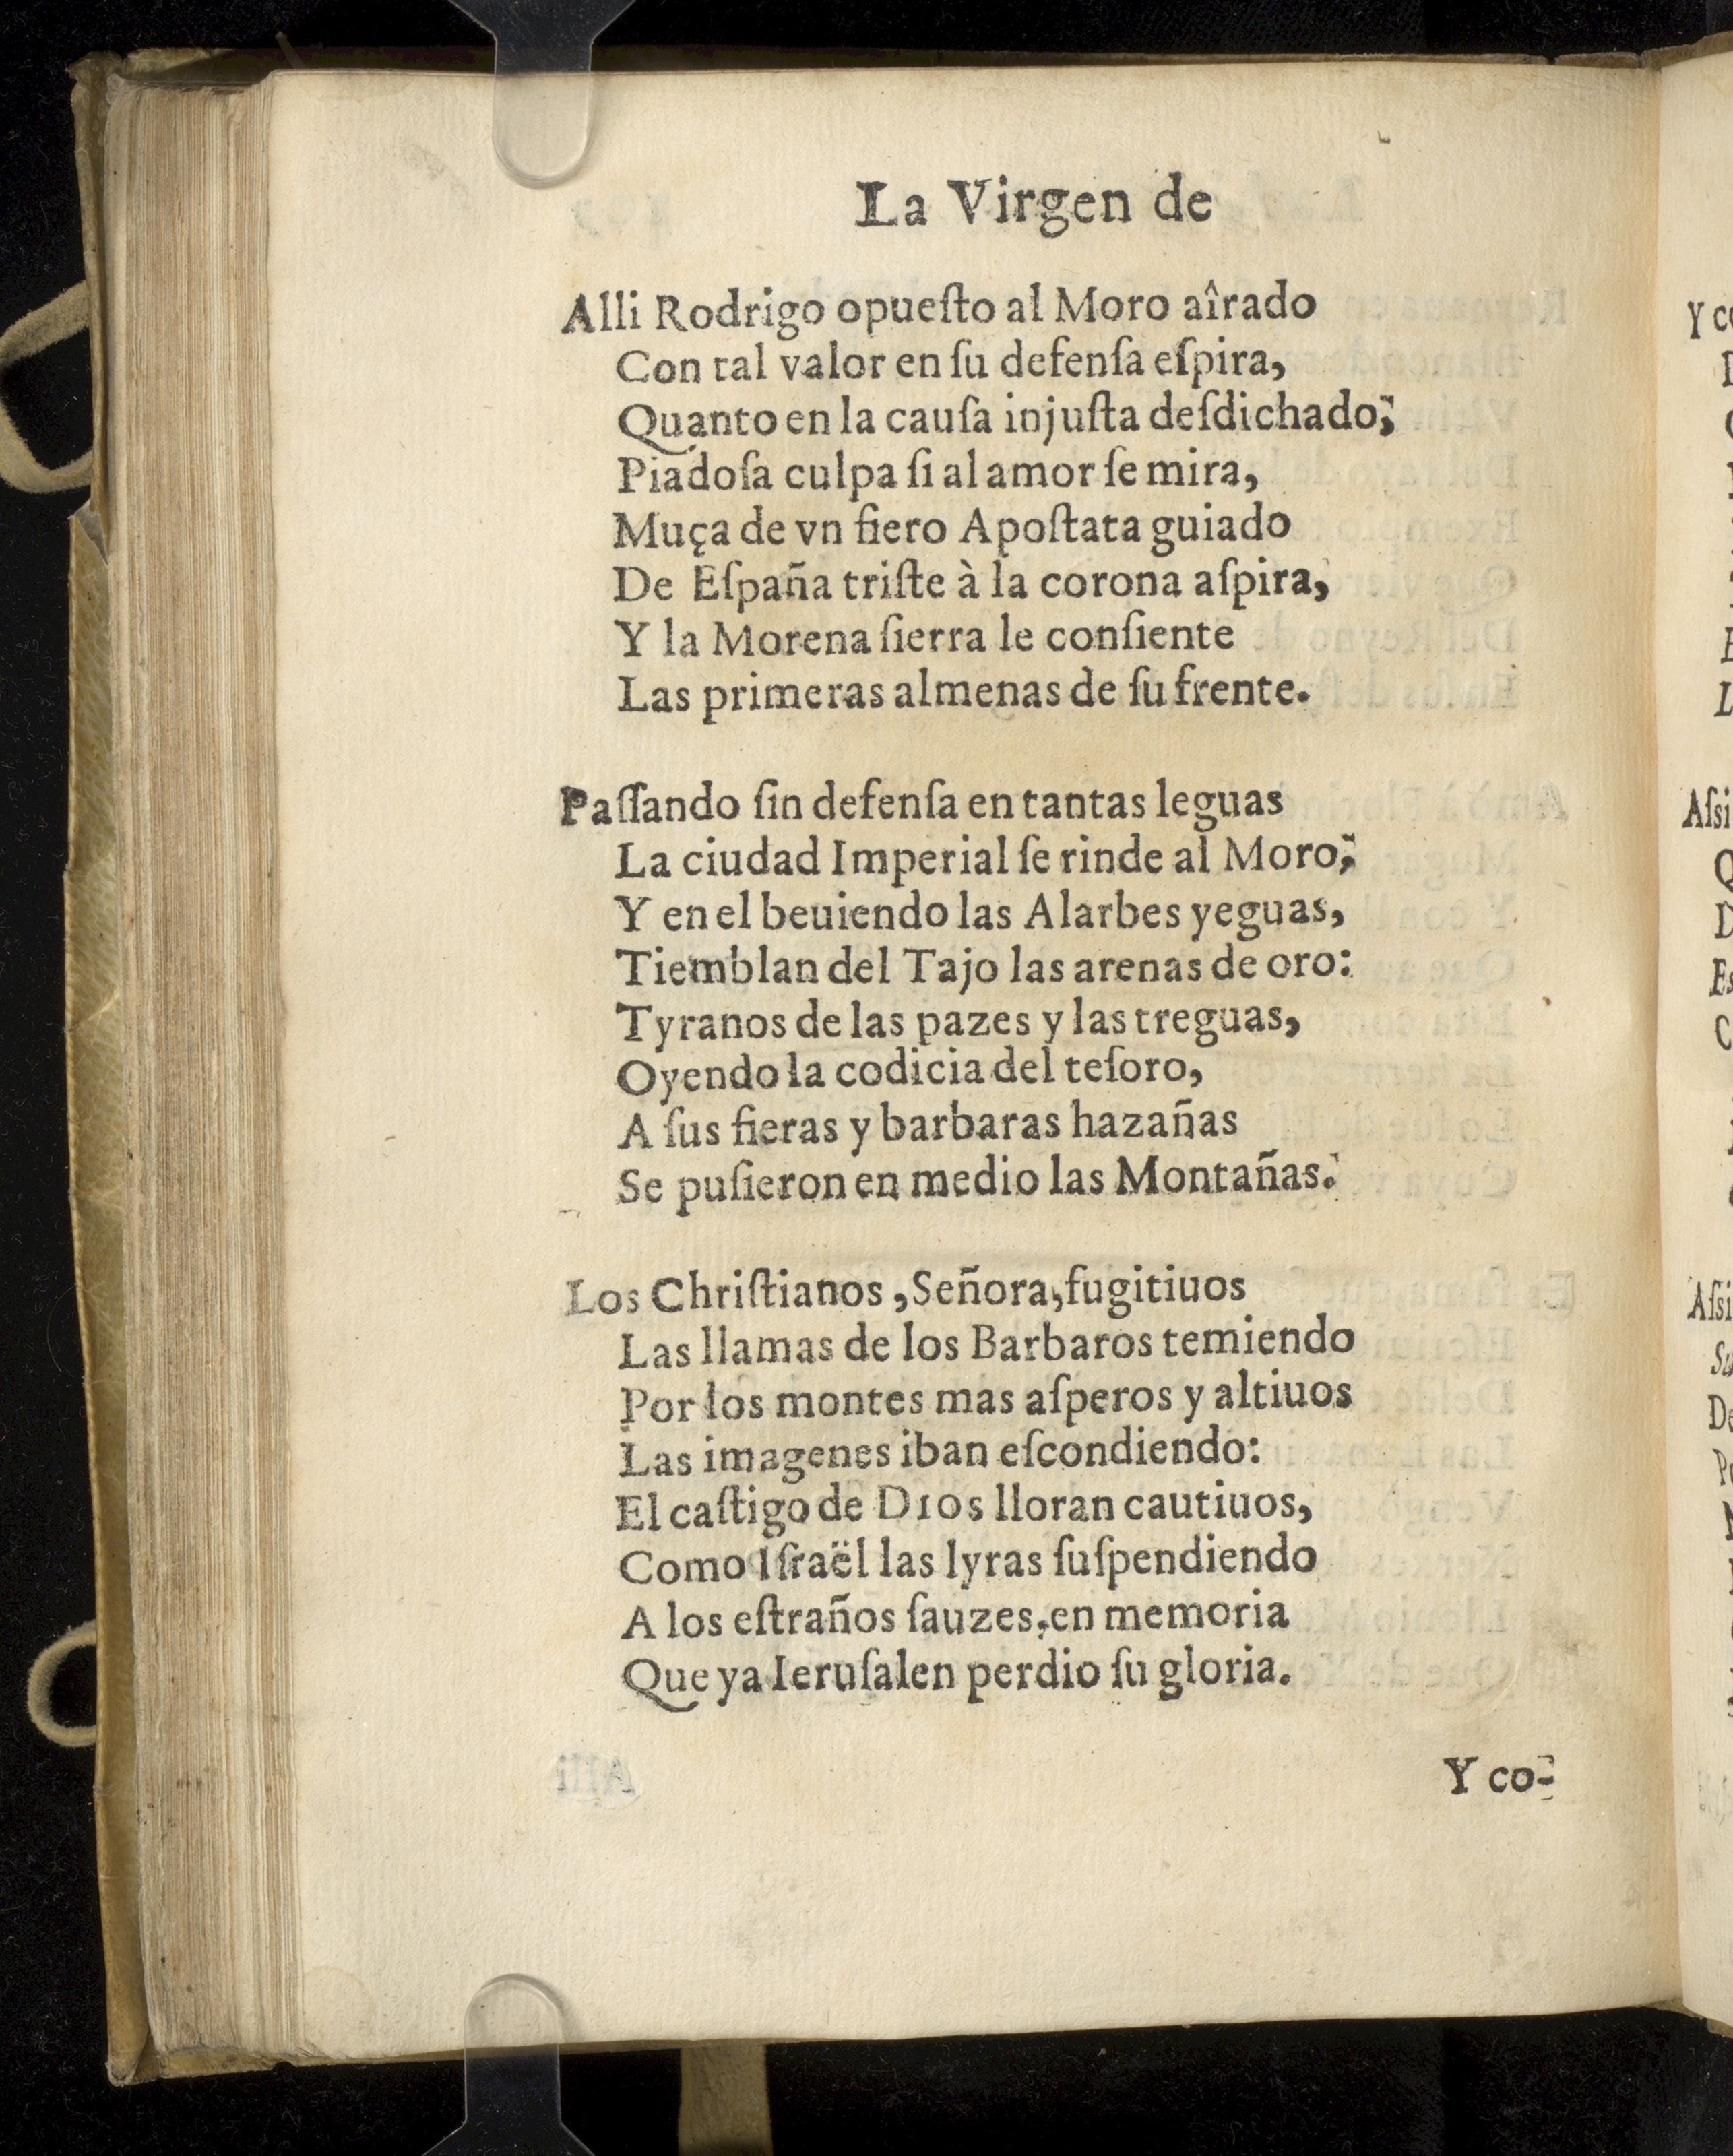 La Virgen de
Alli Rodrigo opueſto al Moro aîrado
Con tal valor en ſu defenſa eſpira,
Quanto en la cauſa injuſta deſdichado;
Piadoſa culpa ſi al amor ſe mira,
Muça de vn fiero Apoſtata guiado
De Eſpaña triſte à la corona aſpira,
Y la Morena ſierra le conſiente
Las primeras almenas de ſu frente.
Paſſando ſin defenſa en tantas leguas
La ciudad Imperial ſe rinde al Moro;
Y en el beuiendo las Alarbes yeguas,
Tiemblan del Tajo las arenas de oro:
Tyranos de las pazes y las treguas,
Oyendo la codicia del teſoro,
A ſus fieras y barbaras hazañas
Se puſieron en medio las Montañas.
Los Chriſtianos, Señora, fugitiuos
Las llamas de los Barbaros temiendo
Por los montes mas aſperos y altiuos
Las imagenes iban eſcondiendo:
El caſtigo de DIOS lloran cautiuos,
Como Iſraël las lyras ſuſpendiendo
A los eſtraños ſauzes, en memoria
Que ya Ieruſalen perdio ſu gloria.
Y co-